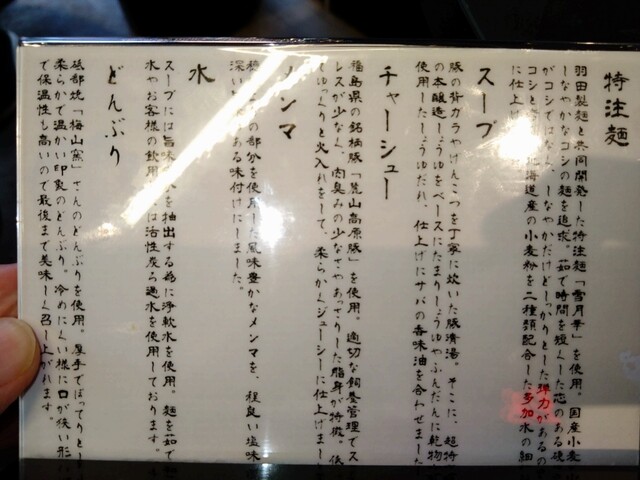 特注麺
羽田製麺と共同開発した特注麺「雪月華」を使用。国産小麦
しなやかなコシの麺を追求。茹で時間を短くした芯のある硬
がコシではなく、しなやかだけどしっかりとした弾力があるの
コシと 海道産の小麦粉を二種類配合した多加水の細
に仕上げ
スープ
豚の背ガラやげんこつを丁寧に炊いた豚清湯。そこに、超特
の本醸造しょうゆをベースにたまりしょうゆやふんだんに乾物
使用したしょうゆだれ、仕上げにサバの香味油を合わせました
チャーシュー
福島県の銘柄豚「麓山高原豚」を使用。適切な飼養管理でス
レスが少なく、肉臭みの少なさやあっさりした脂身が特徴。低
てゆっくりと火入れをして、柔らかくジューシーに仕上げまし
メンマ
の部分を使用した風味豊かなメンマを、程良い塩味
深い ある味付けにしました。
水
スープには旨味 を抽出する為に浄軟水を使用。麺を茹で
水やお客様の飲用 は活性炭ろ過水を使用しております。
どんぶり
砥部焼「梅山窯」さんのどんぶりを使用。厚手でぽってりと
柔らかで温かい印象のどんぶり。冷めにくい様に口が狭い形
で保温性も高いので最後まで美味しく召し上がれます。